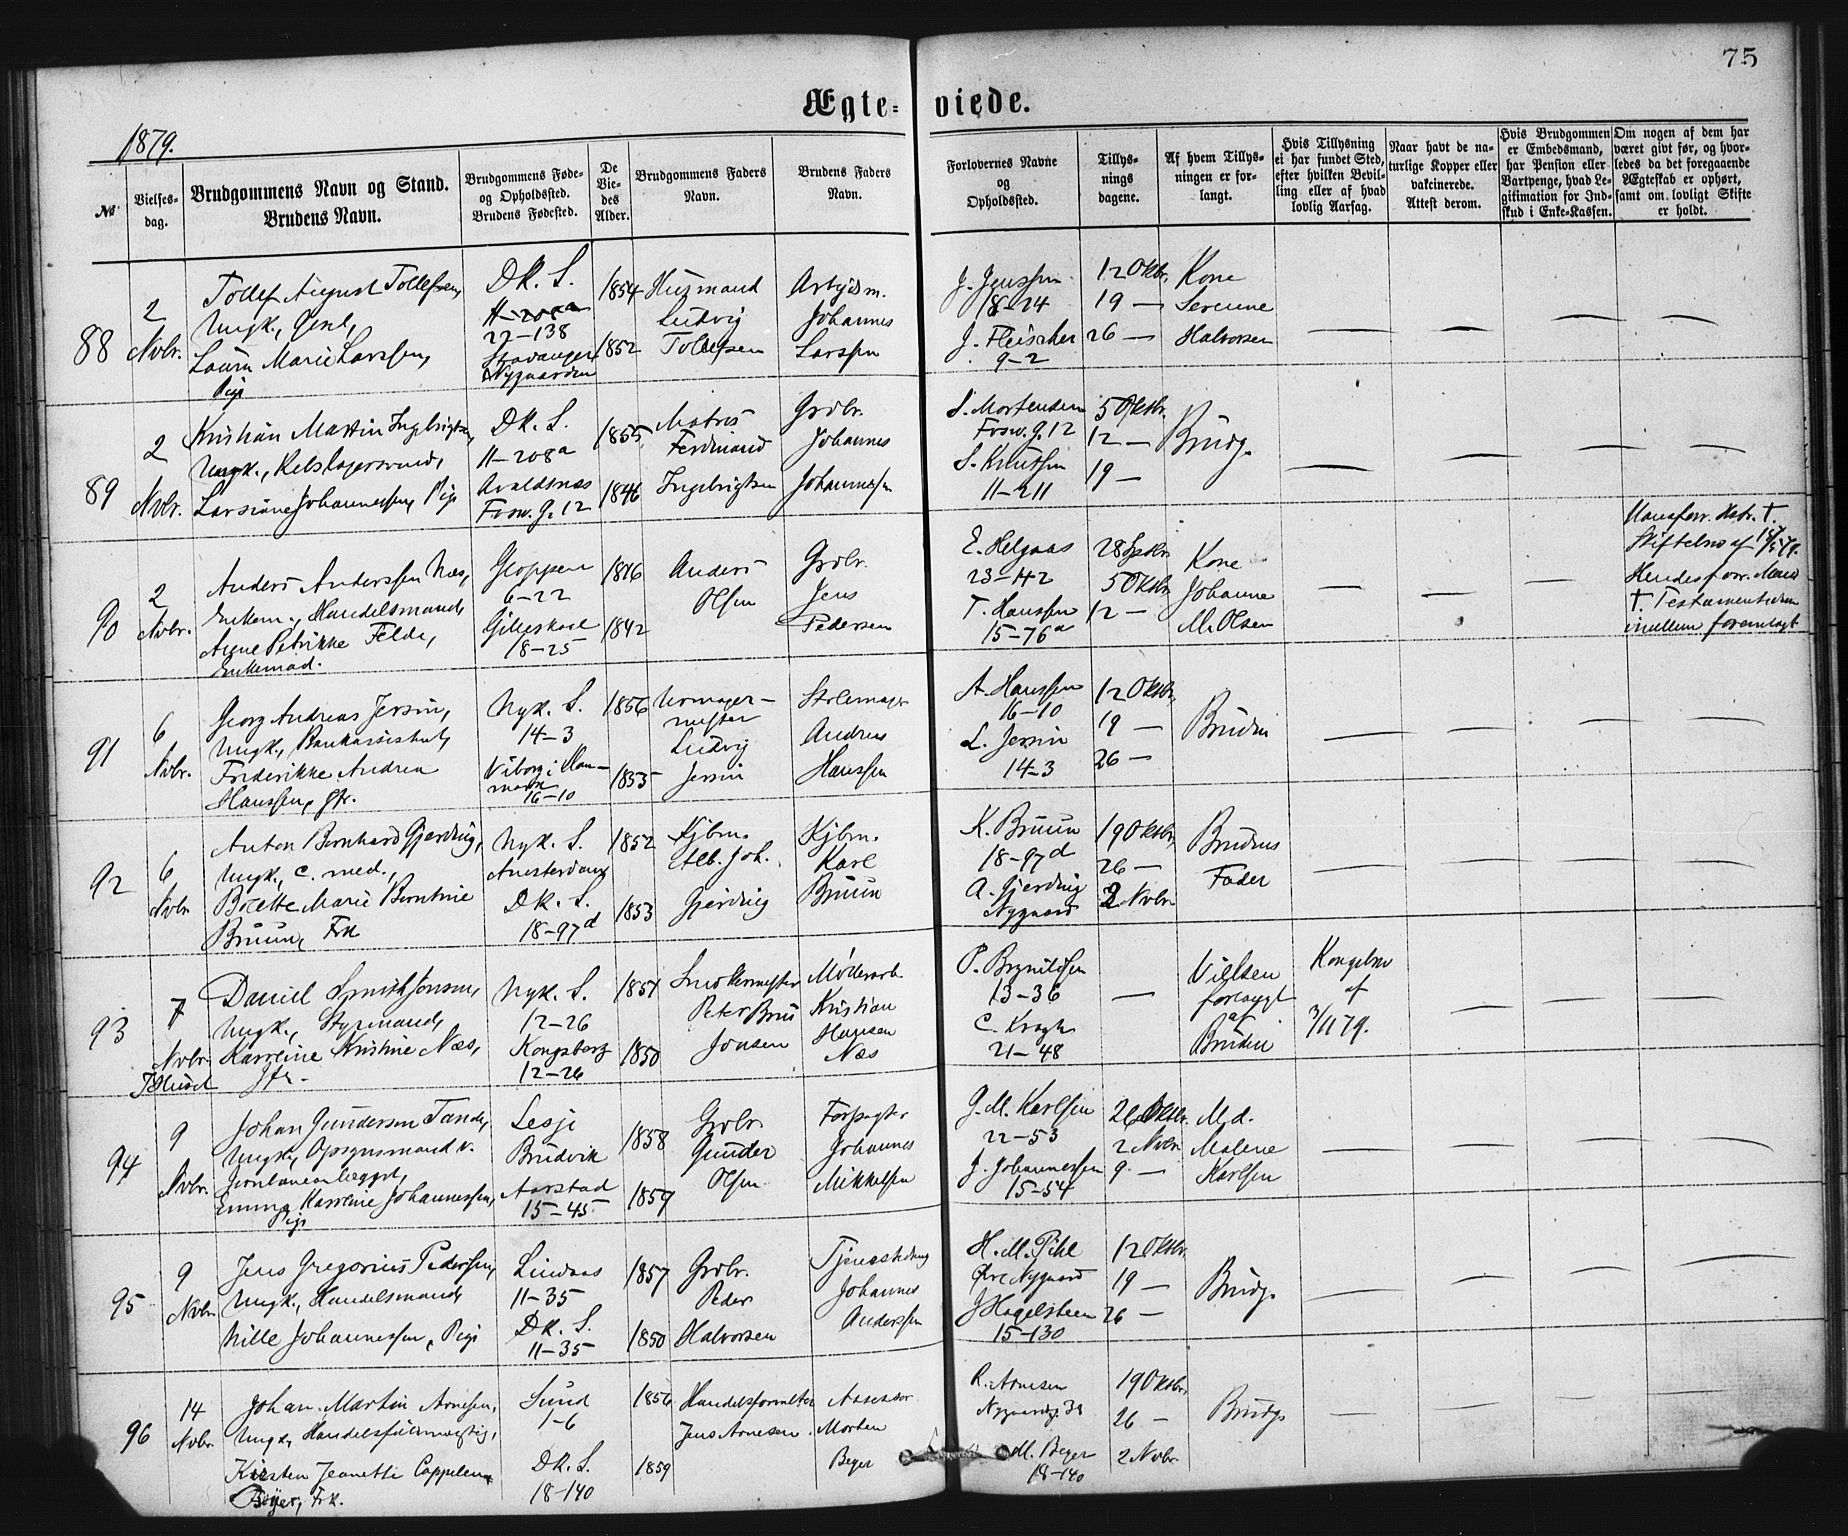 75
Ægte-viede.
1879.
№
Vielses-
dag.
Brudgommens Navn og Stand.
Brudens Navn.
Brudgommens Føde-
og Opholdssted.
Brudens Fødested.
De
Vie-
des
Alder.
Brudgommens Faders
Navn.
Brudens Faders
Navn.
Forlovernes Navne
og
Opholdssted.
Tillys-
nings
dagene.
Af hvem Tillys-
ningen er for-
langt.
Hvis Tillysning
ei har fundet Sted,
efter hvilken Bevil-
ling eller af hvad
lovlig Aarsag.
Naar havt de na-
turlige Kopper eller
vakcinerede.
Attest derom.
Hvis Brudgommen
er Embedsmand,
har Pension eller
Vartpenge, hvad Le-
gitimation for Ind-
skud i Enke-Kassen.
Om nogen af dem har
været givt før, og hvor-
ledes da det foregaaende
Ægteskab er ophørt,
samt om lovligt Skifte
er holdt.
88
2
Nvbr.
Tollef August Tollefsen,
Ungk.,
Laura Marie Larssen,
Pige
DK. S.
11-208a
22-138
Stavanger
Nygaarden
1854
1852
Husmand
Ludvig
Tollefsen
Arbejdsm.
Johannes
Larssen
J. Jenssen
18-24
J. Fleischer
9-2
12 Oktbr.
19 —
26 —
Kone
Serenne
Halvorsen
89
2
Nvbr.
Kristian Martin Ingebrigtsen,
Ungk., Rebslagersvend,
Larsine Johannessen, Pige
DK. S.
11-208a
Avaldsnes
Fosw. g. 12
1855
1846
Matros
Ferdinand
Ingebrigtsen
Grdbr.
Johannes
Johannessen
S. Mortensen
Fosw. g. 12
S. Knutsen
11-211
5 Oktbr.
12 —
19 —
Brudg.
90
2
Nvbr.
Anders Anderssen Næs,
Enkem., Handelsmand,
Anne Petrikke Felde,
Enkemad.
Gloppen
6-22
Gildeskaal
18-25
1816
1842
Anders
Olsen
Grdbr.
Jens
Pedersen
E. Helgaas
23-42
T. Hanssen
15-76a
28 Sptbr.
5 Oktbr.
12 —
Kone
Johanne
M. Olsen
Hans forr. Hstr. †.
Skiftebrev af
Hendes forr. Mand
†. Testamentarisk
imellem foremlagt
91
6
Nvbr.
Georg Andreas Jersin,
Ungk., Bankassistent,
Frederikke Andrea
Hanssen, Jfr.
Nyk. S.
14-3
Viborg i Dan-
mark
16-10
1856
1853
Urmager-
mester
Ludvig
Jersin
Stolemager
Andreas
Hanssen
A. Hanssen
16-10
L. Jersin
14-3
12 Oktbr.
19 —
26 —
Bruden
92
6
Nvbr
Anton Bernhard Gjerding,
Ungk., c. med.,
Bolette Marie Berntine
Bruun, Frk
Nyk. S.
Amsterdam
DK. S.
18-97d
1852
1853
Kjbm.
Alb. Joh.
Gjerding
Kjbm.
Karl
Bruun
K. Bruun
18-97d
A. Gjerding
Nygaard
19 Oktbr.
26 —
2 Nvbr.
Brudens
Fader
93
7
Nvbr.
I Huset
Daniel Smith Jonsen,
Ungk., Styrmand,
Karoline Kristine Næs,
Jfr.
Nyk. S.
12-26
Kongsberg
12-26
1851
1850
Snedkermester
Peter Brun
Jonsen
Møllerarb.
Kristian
Hansen
Næs
P. Brynildsen
13-36
C. Krogh
21-48
—
Vielsen
forlangt
af
Bruden
Kongebrev
af
3/11 79.
94
9
Nvbr.
Johan Gundersen Tande,
Ungk., Opsynsmand v.
Jernbaneanlægget,
Emma Karoline Johannessen,
Pige
Lesje
Brudvik
Aarstad
15-45
1858
1859
Grdbr
Gunder
Olsen
Forpagter
Johannes
Mikkelsen
G. M. Karlsen
22-53
J. Johannessen
15-54
26 Oktbr.
2 Nvbr
9 —
Md.
Malene
Karlsen
95
9
Nvbr
Jens Gregorius Pedersen,
Ungk., Handelsmand,
Nille Johannessen, Pige
Lindaas
11-35
DK. S.
11-35
1857
1850
Grdbr.
Peder
Halvorsen
Tjenestedreng
Johannes
Anderssen
H. M. Pihl
Øvre Nygaard
J Hagelsteen
15-130
12 Oktbr.
19 —
26 —
Brudg.
96
14
Nvbr
Johan Martin Arnesen,
Ungk. Handelsfuldmægtig,
Kirsten Jeanette Cappelen
Beyer, Frk.
Sund
1-6
DK. S.
18-140
1856
1859
Handelsforvalter
Jens Arnesen
Assessor
Morten
Beyer
R. Arnesen
Nygaardsg. 38
M. Beyer
18-140
19 Oktbr.
26 —
2 Nvbr
Brudg.